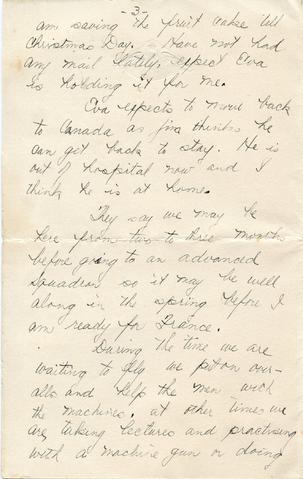 -3-
am saving the fruit cake till
Christmas Day. Have not had
any mail lately, expect Eva
is holding it for me.
Eva expects to move back
to Canada as Jim thinks he
can get back to stay. He is
out of hospital now and I
think he is at home.
They say we may be
here from two to three months
before going to an advanced
Squadron so it may be well
along in the spring before I
am ready for France.
During the time we are
waiting to fly we put on our-
alls and help the men with
the machines. at other times we
are taking lectures and practising
with a machine gun or doing